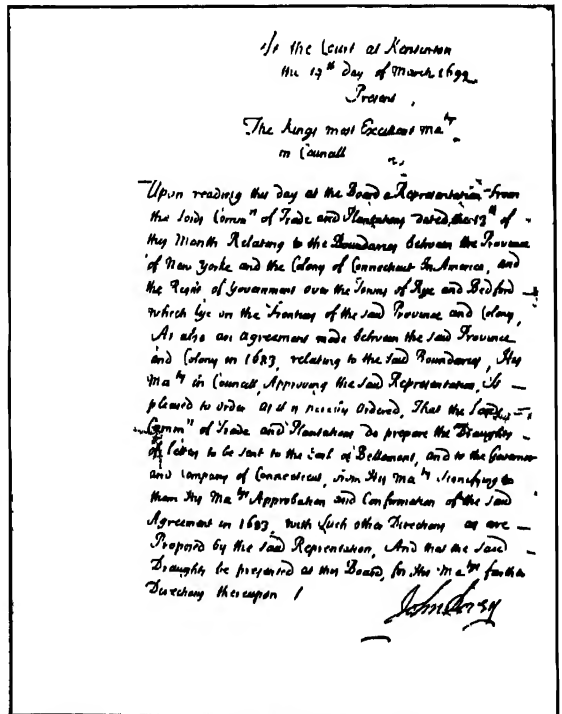 At the Court at Kensington
the 19th day of March 1699
Present
The Kings most Excellent Maty
in Councill
Upon reading this day at the Board a Representation from
the Lords Commrs of Trade and Plantations dated the 13th of
this Month Relating to the Boundaries between the Province
of New Yorke and the Colony of Connecticut In America, and
the Right of Government over the Towns of Rye and Bedford
which lye on the Frontiers of the said Province and Colony,
As also an Agreement made between the said Province
and Colony in 1683, relating to the said Boundaries, His
Maty in Councill, Approving the said Representation, is
pleased to order as it is hereby Ordered, That the Lords
Commrs of Trade and Plantations do prepare the Draughts
of Letters to be sent to the Earl of Bellomont, and to the Governor
and Company of Connecticut, from His Maty Signifying to
them His Matys Approbation and Confirmation of the said
Agreement in 1683, with such other Directions as are
Proposed by the said Reprentation, And that the said
Draughts be presented at this Board, for His Matys further
Directions thereupon /